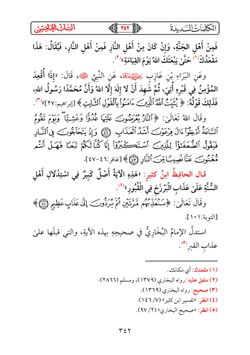 الكلمات السديدة
٣٤٢
فَمِنْ أَهْلِ الجَنَّةِ، وَإِنْ كَانَ مِنْ أَهْلِ النَّارِ فَمِنْ أَهْلِ النَّارِ، فَيُقَالُ: هَذَا
مَقْعَدُكَ(١) حَتَّى يَبْعَثَكَ اللهُ يَوْمَ القِيَامَةِ»(٢).
وعَنِ البَرَاءِ بْنِ عَازِبٍ، عَنِ النَّبِيِّ ﷺ، قَالَ: «إِذَا أُقْعِدَ
المُؤْمِنُ فِي قَبْرِهِ أُتِيَ، ثُمَّ شَهِدَ أَنْ لَا إِلَهَ إِلَّا اللهُ وَأَنَّ مُحَمَّدًا رَسُولُ اللهِ،
فَذَلِكَ قَوْلُهُ: ﴿يُثَبِّتُ اللَّهُ الَّذِينَ آمَنُوا بِالْقَوْلِ الثَّابِتِ﴾ [إبراهيم: ٢٧]»(٣).
وقَالَ اللهُ تَعَالَى: ﴿النَّارُ يُعْرَضُونَ عَلَيْهَا غُدُوًّا وَعَشِيًّا وَيَوْمَ تَقُومُ
السَّاعَةُ أَدْخِلُوا آلَ فِرْعَوْنَ أَشَدَّ الْعَذَابِ ۝ وَإِذْ يَتَحَاجُّونَ فِي النَّارِ
فَيَقُولُ الضُّعَفَاءُ لِلَّذِينَ اسْتَكْبَرُوا إِنَّا كُنَّا لَكُمْ تَبَعًا فَهَلْ أَنْتُمْ
مُغْنُونَ عَنَّا نَصِيبًا مِنَ النَّارِ﴾ [غافر: ٤٦-٤٧].
قَالَ الحَافِظُ ابنُ كَثِيرٍ: «هَذِهِ الآيَةُ أَصْلٌ كَبِيرٌ فِي اسْتِدْلَالِ أَهْلِ
السُّنَّةِ عَلَى عَذَابِ البَرْزَخِ فِي القُبُورِ»(٤).
وقَالَ تَعَالَى: ﴿سَنُعَذِّبُهُمْ مَرَّتَيْنِ ثُمَّ يُرَدُّونَ إِلَى عَذَابٍ عَظِيمٍ﴾
[التوبة: ١٠١].
استدلَّ الإمامُ البُخَارِيُّ فِي صَحِيحِهِ بهذه الآية، والتي قبلَها على
عذابِ القبرِ(٥).
(١) مقعدك: أي مكانك.
(٢) متفق عليه: رواه البخاري (١٣٧٩)، ومسلم (٢٨٦٦).
(٣) صحيح: رواه البخاري (١٣٦٩).
(٤) انظر: «تفسير ابن كثير» (٧/ ١٤٦).
(٥) انظر: «صحيح البخاري» (٢/ ٩٧).
٣٤٢